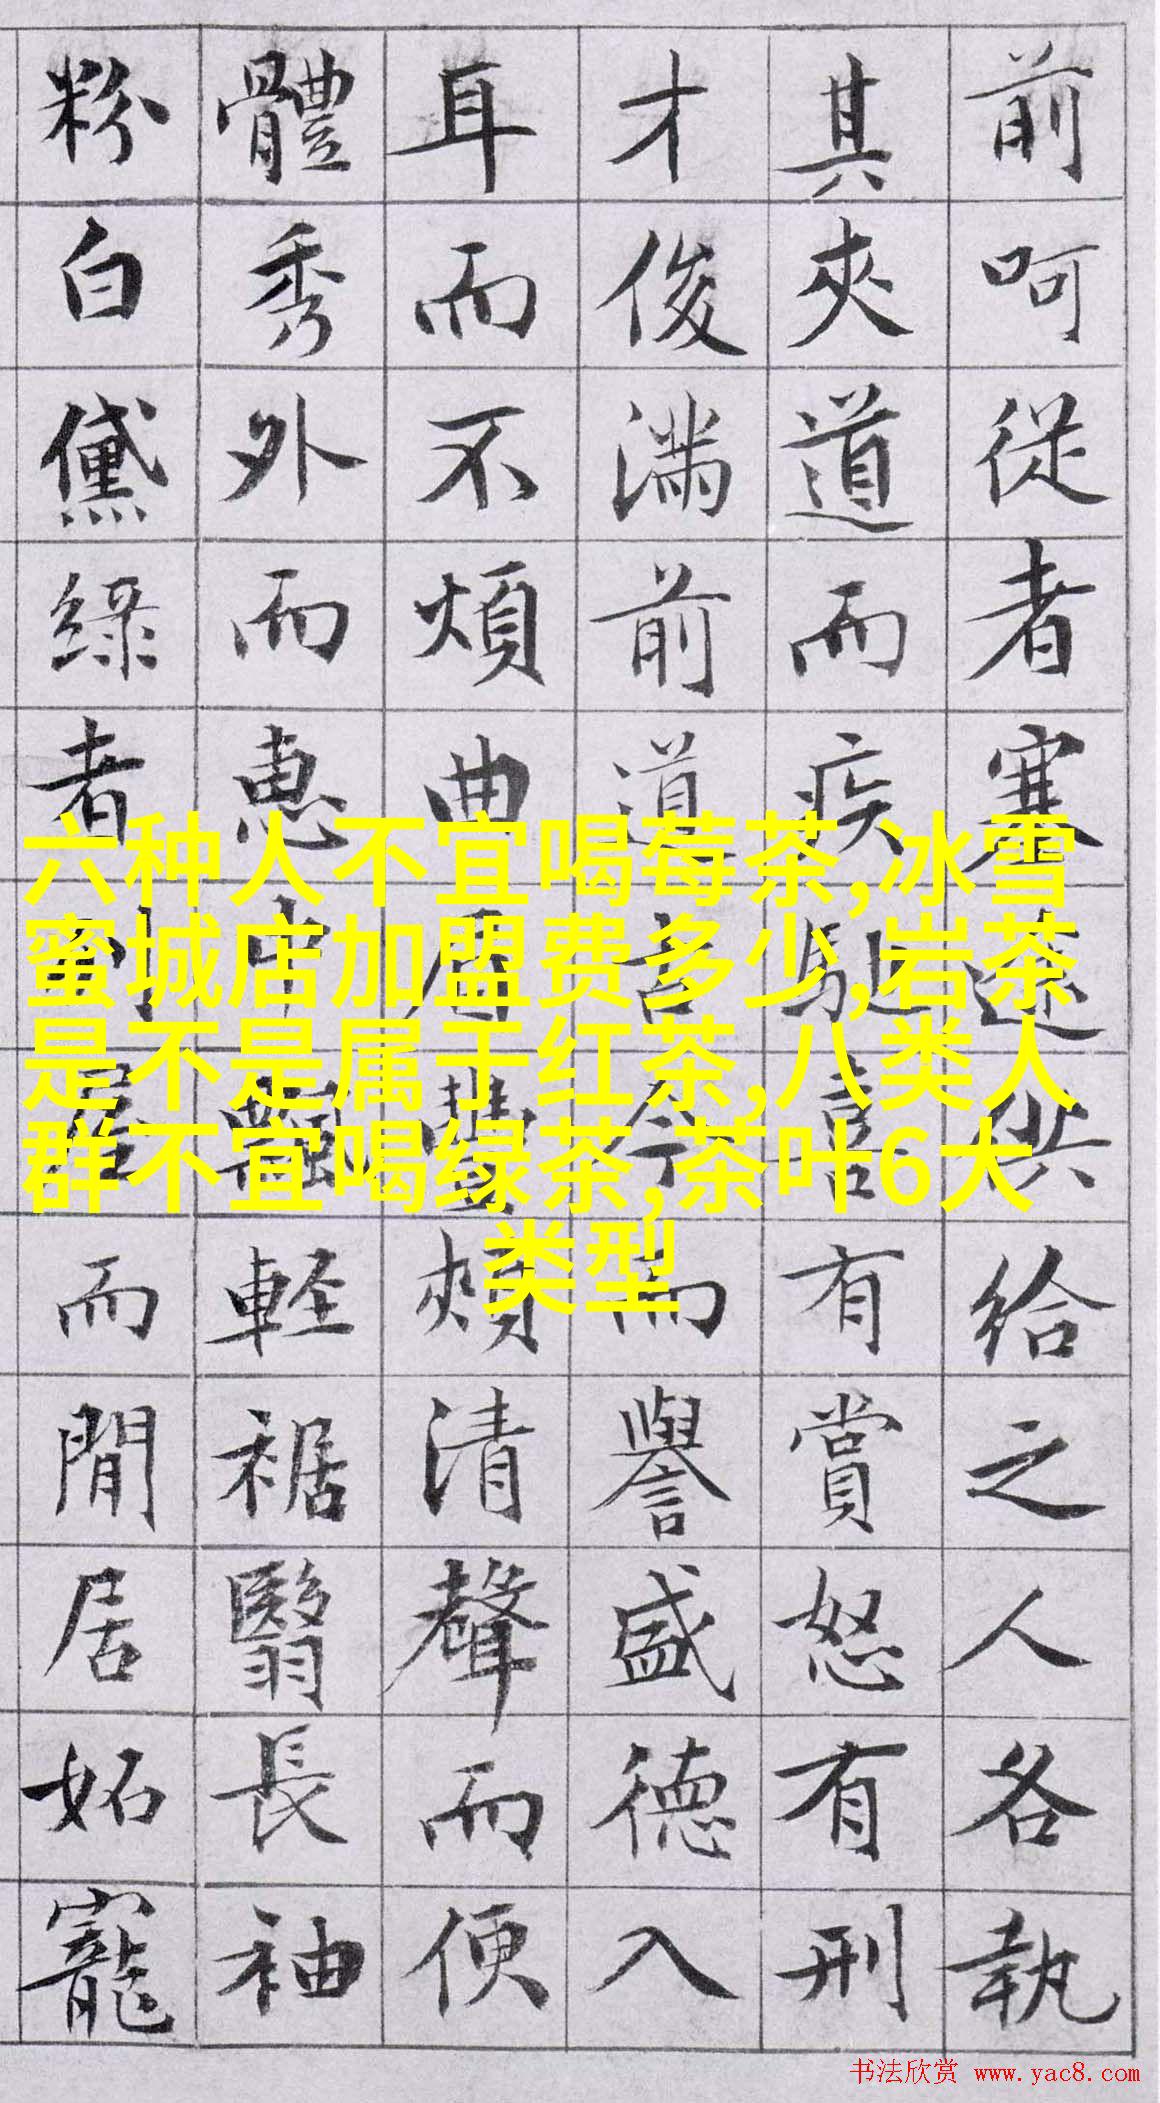 前呵從者塞途供給之人各執
其夾道而疾馳喜有賞怒有刑
才俊滿前道古今而譽盛德入
耳而不煩曲眉豐頰清聲而便
體秀外而惠中飄輕裾翳長袖
粉白黛綠者列屋而閒居妬寵
六种人不宜喝莓茶,冰雪
蜜城店加盟费多少,岩茶
是不是属于红茶,八类人
群不宜喝绿茶,茶叶6大
类型
书法欣赏 www.yac8.com